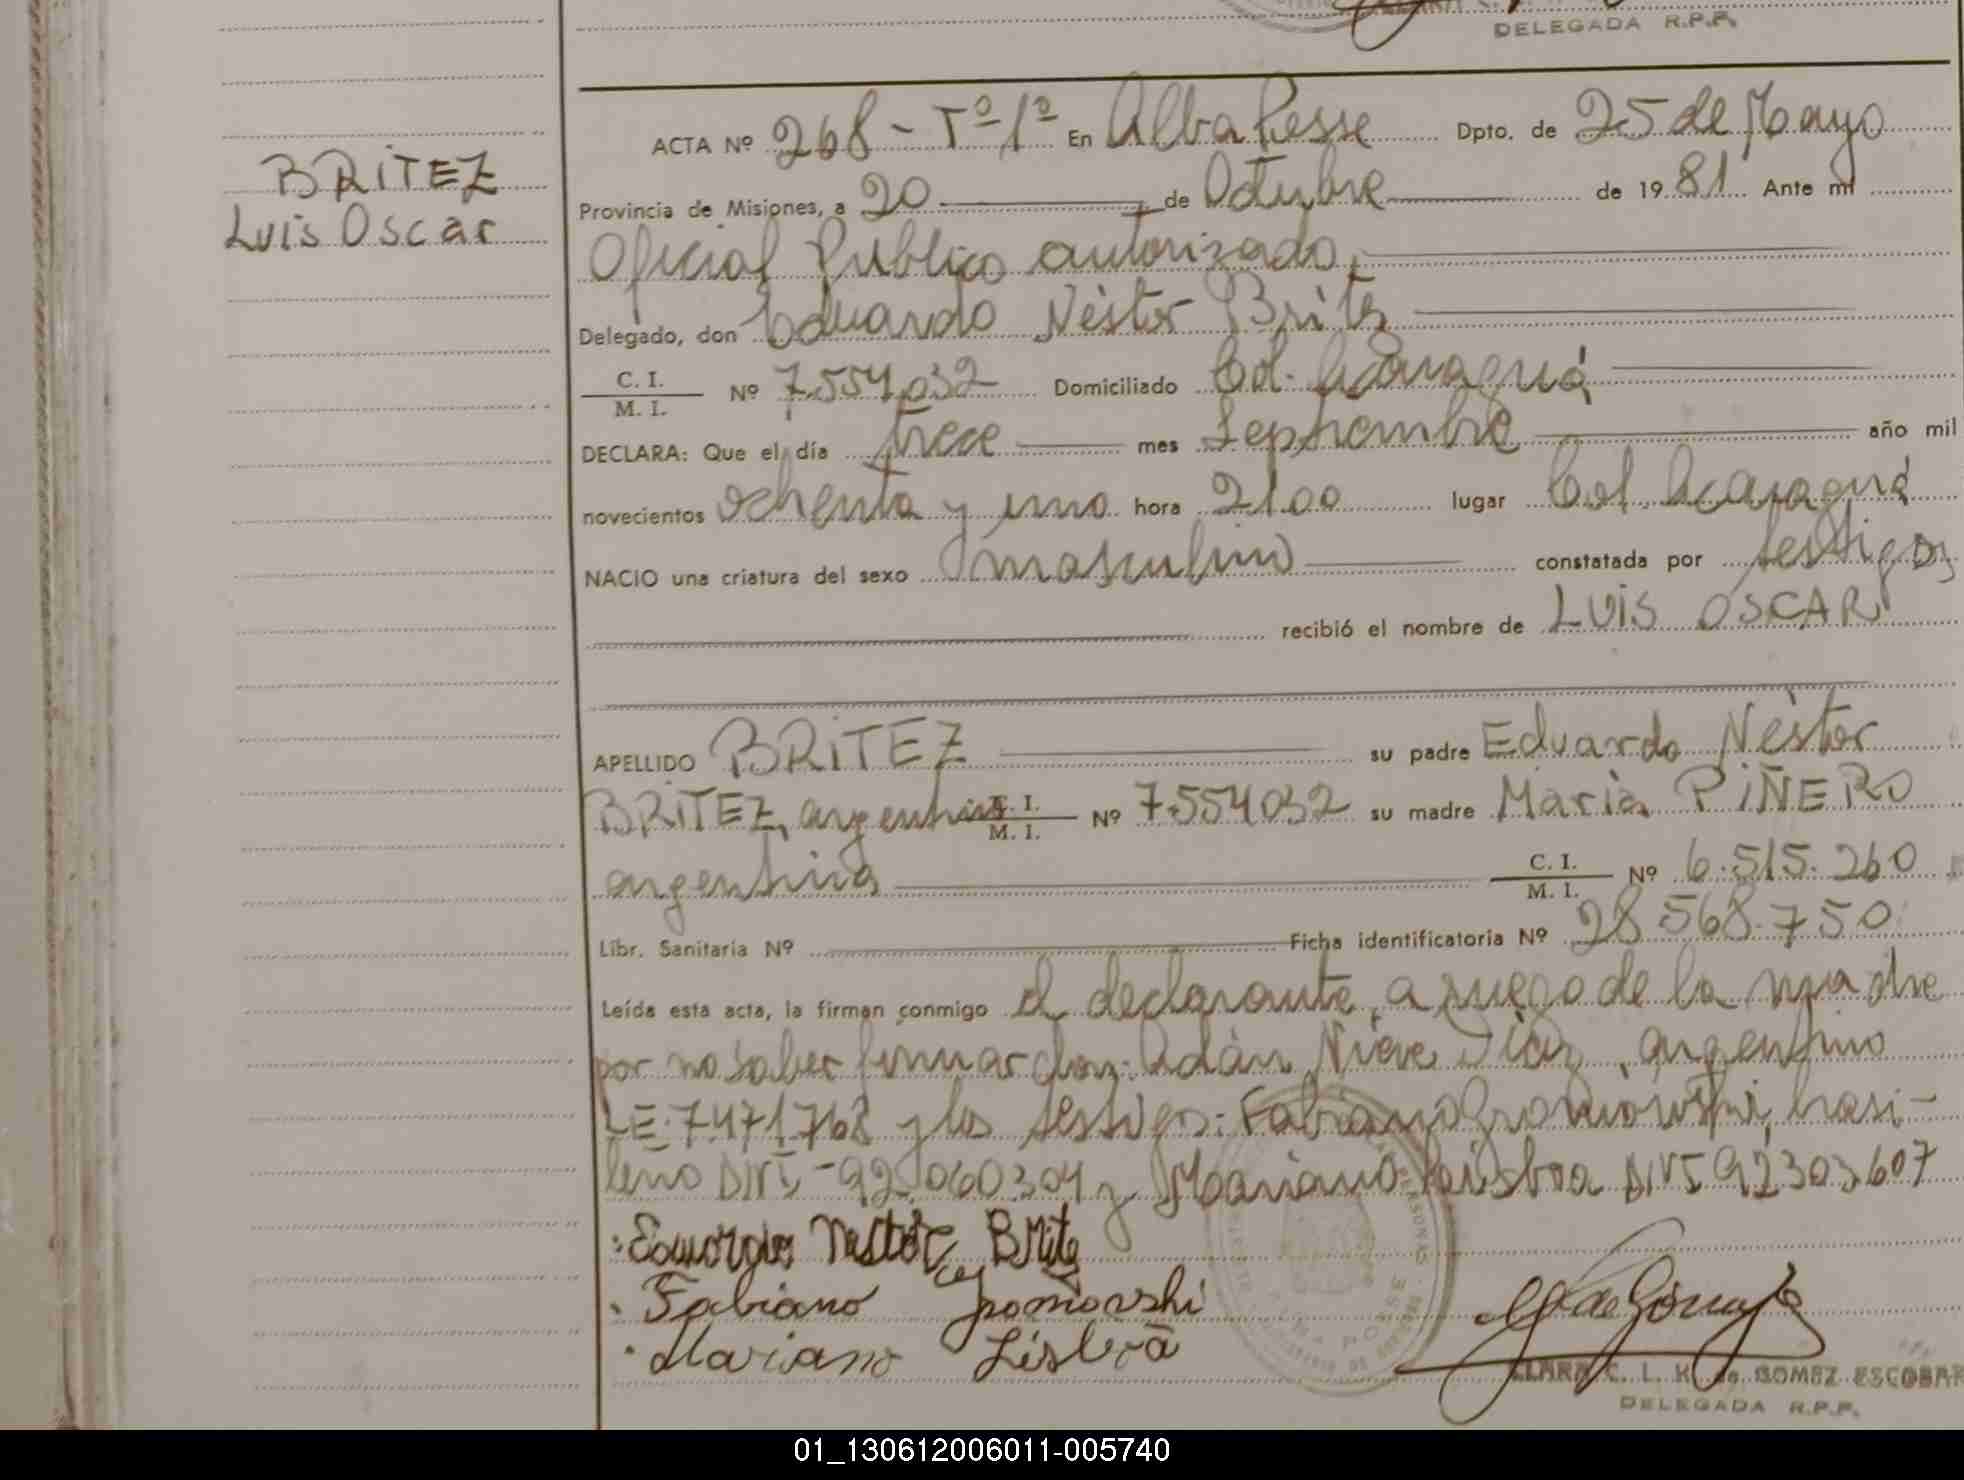 DELEGADA R.P.P.
BRITEZ
Luis Oscar
ACTA Nº 268 - Tº 1º En Alba Posse Dpto. de 25 de Mayo
Provincia de Misiones, a 20 de Octubre de 1981 Ante mí
Oficial Público autorizado
Delegado, don Eduardo Néstor Britez
C. I. / M. I. Nº 7.554.032 Domiciliado Col. Acaraguá
DECLARA: Que el día trece mes Septiembre año mil
novecientos ochenta y uno hora 21.00 lugar Col. Acaraguá
NACIO una criatura del sexo masculino constatada por testigos
recibió el nombre de LUIS OSCAR
APELLIDO BRITEZ su padre Eduardo Néstor
BRITEZ, argentino C. I. / M. I. Nº 7.554.032 su madre María PIÑERO
argentina C. I. / M. I. Nº 6.515.260
Libr. Sanitaria Nº Ficha identificatoria Nº 28.568.750
Leída esta acta, la firman conmigo el declarante, a ruego de la madre
por no saber firmar don: Adán Nieve Díaz, argentino
LE. 7.471.768 y los testigos: Fabiano Gromowski, brasi-
leño DNI - 92.060.304 y Mariano Lisboa DNI 92303607
Néstor Britez
Fabiano Gromovski
Mariano Lisboa
CLARA C. L. K. de GOMEZ ESCOBAR
DELEGADA R.P.P.
01_130612006011-005740